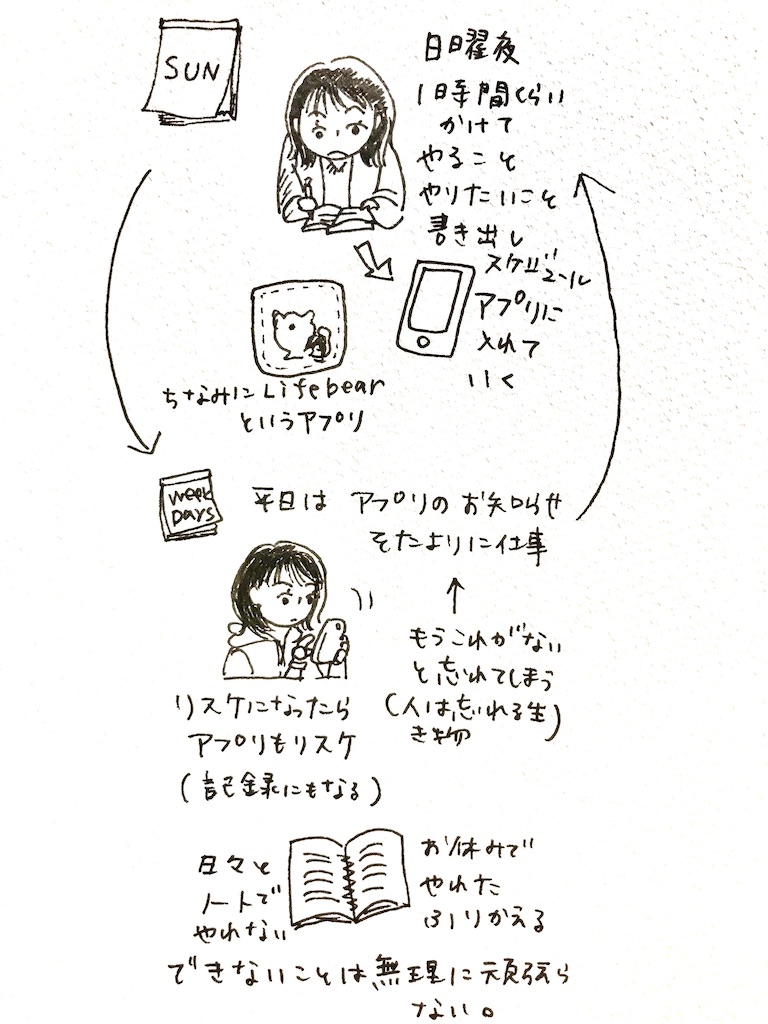 SUN
日曜夜
1時間くらい
かけて
やること
やりたいこと
書き出し
スケジュール
アプリに
入れて
いく
ちなみにLifebear
というアプリ
WEEK
DAYS
平日は アプリのお知らせ
そたよりに仕事
もうこれがない
と忘れてしまう
(人は忘れる生
き物)
リスケになったら
アプリもリスケ
(記録にもなる)
日々と
ノートで
やれない
お休みで
やれた
ふりかえる
できないことは無理に頑張ら
ない。